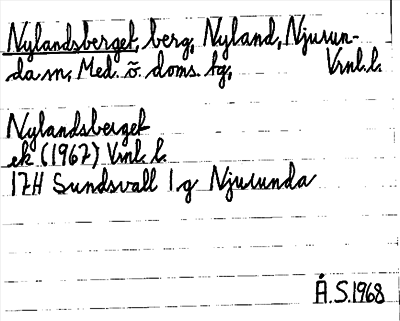 Nylandsberget, berg, Nyland, Njurun-
da sn, Med. ö. doms. tg, Vrnl.l.
Nylandsberget
ek (1967) Vrnl. l.
17H Sundsvall 1g Njurunda
Å.S.1968